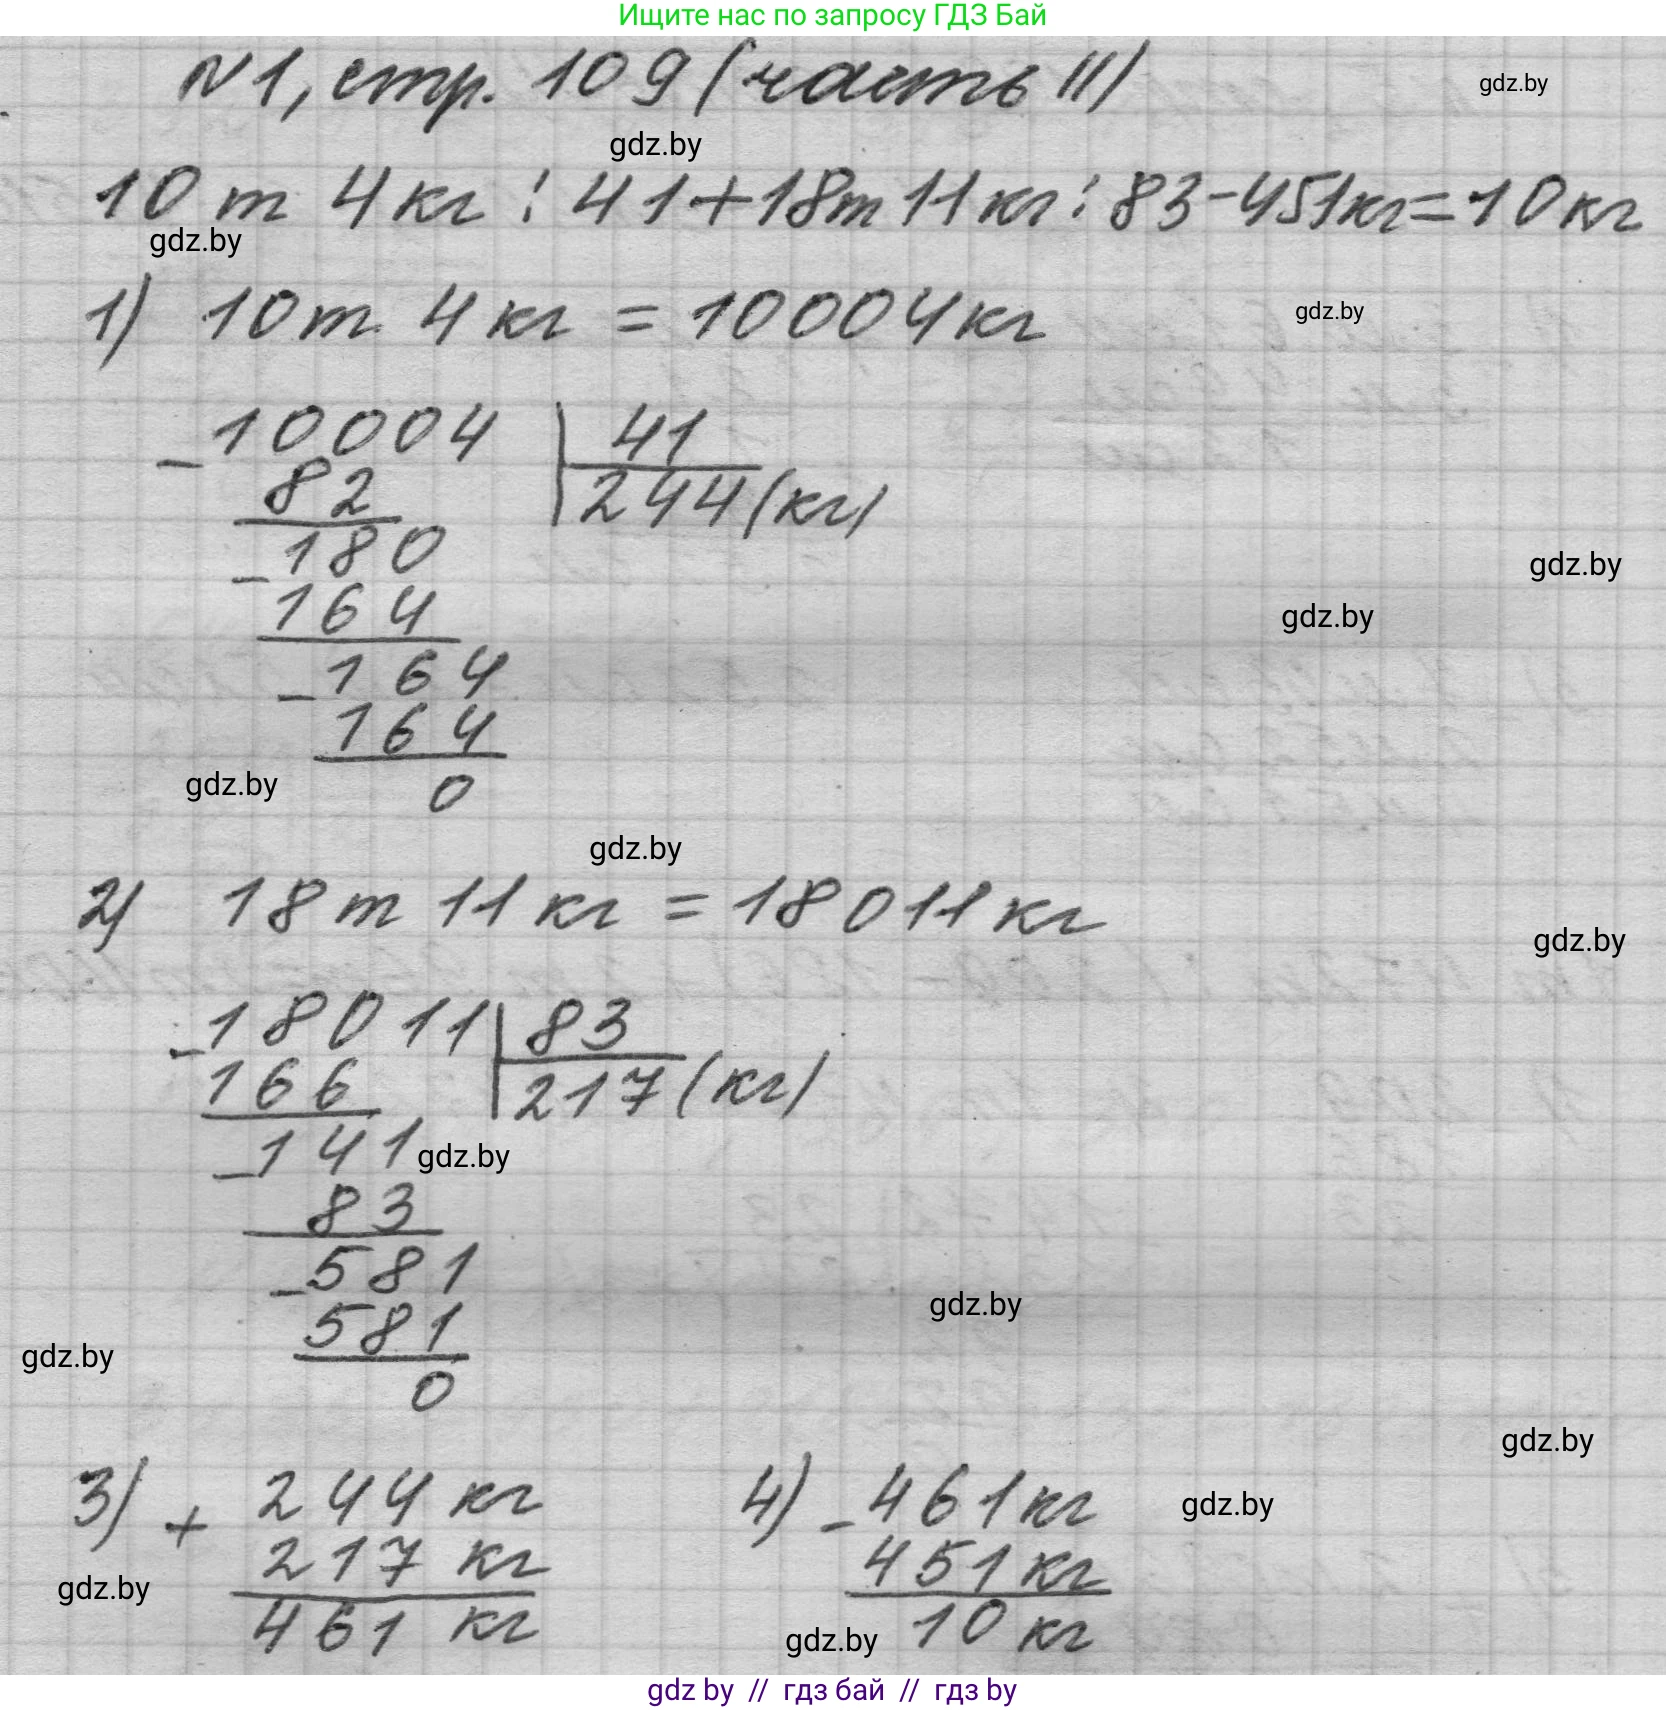 Ищите нас по запросу ГДЗ Бай
№1, стр. 109 (часть II)
gdz.by
gdz.by
10 т 4 кг : 41 + 18 т 11 кг : 83 - 451 кг = 10 кг
gdz.by
1) 10 т 4 кг = 10004 кг
gdz.by
- 10004 | 41
82 | 244 (кг)
- 180
gdz.by
164
gdz.by
- 164
164
0
gdz.by
gdz.by
2) 18 т 11 кг = 18011 кг
gdz.by
- 18011 | 83
166 | 217 (кг)
- 141
gdz.by
83
- 581
gdz.by
581
gdz.by
0
gdz.by
3) + 244 кг 4) - 461 кг
gdz.by
217 кг 451 кг
gdz.by
461 кг 10 кг
gdz.by
gdz by // гдз бай // гдз by